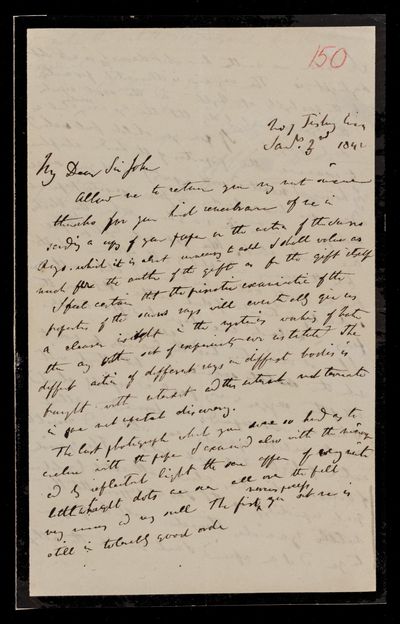 150
Jany 3rd 1842
My Dear Sir John
Allow me to return you my most sincere
thanks for your kind remembrance of me in
sending a copy of your paper on the action of the
Rays. which it is almost unnecessary to add I shall value as
much for the author of the gift as for the gift itself
I feel certain that the minute examination of the
properties of the rays will eventually give us
a clearer insight in the mysterious working of
than any other set of experiments ever instituted The
different action of different rays on different bodies is
fraught with interest and this interest must terminate
in some most capital discovery.
The last photograph which you were so kind as to
enclose with the paper I examined also with the
and by reflected light the same appear of
little bright dots are seen all over the field
very many and very small The first you sent me is
still in tolerably good order